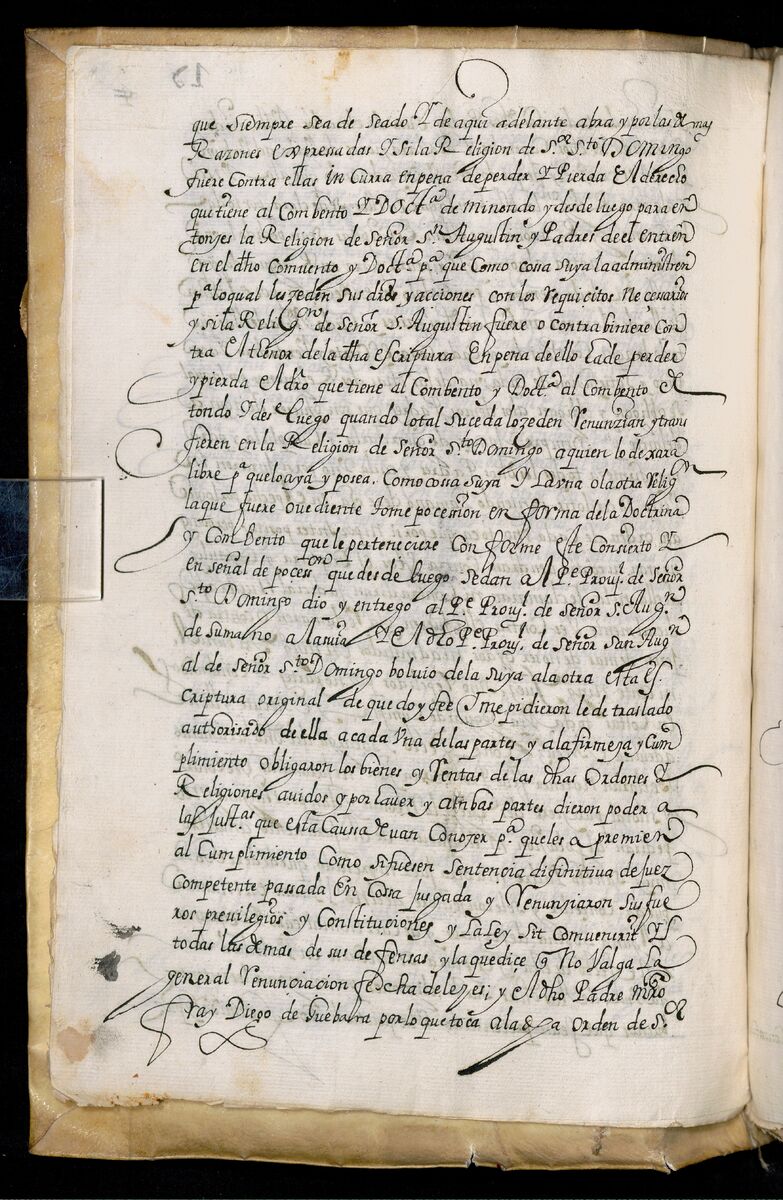 que siempre sea de seado Y de aqui adelante abra y por las demas
Razones expressadas Y si la Religion de S.or S.to Domingo
fuere Contra ellas in Curra en pena de perder Y Pierda El derecho
que tiene al Combento Y Doct.a de minondo y desde luego para en
tonzes la Religion de Señor S.n Augustin y Padres de el entren
en el dho Comvento y Doct.a p.a que Como cossa suya la administren
p.a lo qual les zeden sus dros y acciones con los requicitos Necessarios
y si la Relig.on de Señor S. Augustin fuere o contrabiniere Con
tra El thenor de la dha escriptura En pena de ello a de perder
y pierda El dro que tiene al Combento y Doct.a al Combento de
tondo Y desde luego quando lo tal suceda lo zeden renunzian y trans
fieren en la Religion de Señor S.to Domingo a quien lo dexara
libre p.a que lo aya y posea. Como cossa suya Y La una o la otra relig.on
la que fuere ovediente tome pocession en forma de la Doctrina
y Combento que le perteneciere Conforme este Consierto Y
en señal de pocess.on que desde luego se dan El P.e Prou.l de Señor
S.to Domingo dio y entrego al P.e Prou.l de Señor S. Aug.n
de su mano a la mia Y El dho P.e Prou.l de Señor San Aug.n
al de Señor S.to Domingo boluio de la suya a la otra esta es
criptura original de que doy fee Y me pidieron le de traslado
authorisado de ella a cada Una de las partes y a la firmeza y Cum
plimiento obligaron los bienes y rentas de las dhas Ordones Y
Religiones auidos y por hauer y ambas partes dieron poder a
las Just.as que esta Caussa deuan Conozer p.a que les apremien
al Cumplimiento Como si fuesen Sentencia difinitiva de juez
Competente passada En Cossa jusgada y renunziaron sus fue
ros preuilegios y Constituciones y La Ley sit comvenerit Y
todas las demas de sus defensas y la que dice q No Valga La
general renunciacion fescha de leyes; y El dho Padre mro
fray Diego de Guebarra por lo que toca a la dha orden de S.or